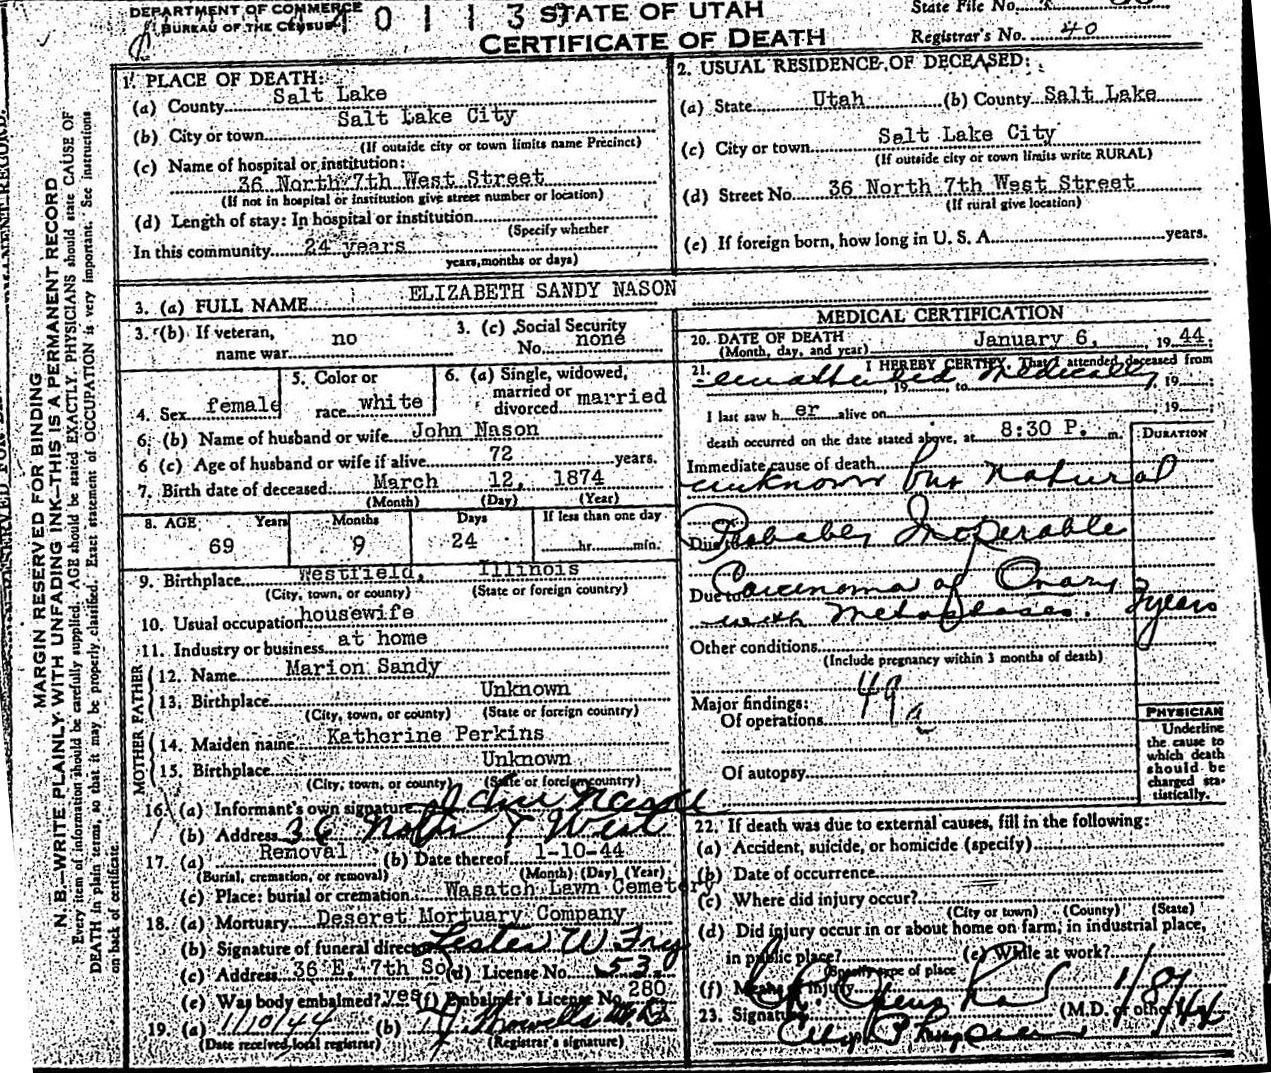 DEPARTMENT OF COMMERCE
BUREAU OF THE CENSUS
STATE OF UTAH
CERTIFICATE OF DEATH
State File No.
Registrar's No. 40
MARGIN RESERVED FOR BINDING
N. B.—WRITE PLAINLY WITH UNFADING INK—THIS IS A PERMANENT RECORD
Every item of information should be carefully supplied. AGE should be stated EXACTLY. PHYSICIANS should state CAUSE OF
DEATH in plain terms, so that it may be properly classified. Exact statement of OCCUPATION is very important. See instructions
on back of certificate.
1. PLACE OF DEATH:
(a) County Salt Lake
(b) City or town Salt Lake City
(If outside city or town limits name Precinct)
(c) Name of hospital or institution:
36 North 7th West Street
(If not in hospital or institution give street number or location)
(d) Length of stay: In hospital or institution
(Specify whether
In this community 24 years
years, months or days)
2. USUAL RESIDENCE OF DECEASED:
(a) State Utah (b) County Salt Lake
(c) City or town Salt Lake City
(If outside city or town limits write RURAL)
(d) Street No. 36 North 7th West Street
(If rural give location)
(e) If foreign born, how long in U. S. A. years.
3. (a) FULL NAME ELIZABETH SANDY NASON
3. (b) If veteran, name war no
3. (c) Social Security No. none
4. Sex female
5. Color or race white
6. (a) Single, widowed, married or divorced married
6. (b) Name of husband or wife John Nason
6 (c) Age of husband or wife if alive 72 years.
7. Birth date of deceased March 12, 1874
(Month) (Day) (Year)
8. AGE Years Months Days If less than one day
69 9 24 hr. min.
9. Birthplace Westfield, Illinois
(City, town, or county) (State or foreign country)
10. Usual occupation housewife
11. Industry or business at home
FATHER
12. Name Marion Sandy
13. Birthplace Unknown
(City, town, or county) (State or foreign country)
MOTHER
14. Maiden name Katherine Perkins
15. Birthplace Unknown
(City, town, or county) (State or foreign country)
16. (a) Informant's own signature John Nason
(b) Address 36 North 7 West
17. (a) Removal (b) Date thereof 1-10-44
(Burial, cremation, or removal) (Month) (Day) (Year)
(c) Place: burial or cremation Wasatch Lawn Cemetery
18. (a) Mortuary Deseret Mortuary Company
(b) Signature of funeral director Lester W Fry
(c) Address 36 E. 7th So. (d) License No. 53
(e) Was body embalmed? yes (f) Embalmer's License No. 280
19. (a) 1/10/44 (b)
(Date received local registrar) (Registrar's signature)
MEDICAL CERTIFICATION
20. DATE OF DEATH January 6, 1944;
(Month, day, and year)
21. I HEREBY CERTIFY, That I attended deceased from
unattended medically, 19 to , 19 ;
I last saw h er alive on , 19 ;
death occurred on the date stated above, at 8:30 P. m.
DURATION
Immediate cause of death
unknown but natural
Due to Probably Inoperable
Due to Carcinoma of Ovary
with Metastases. 3 years
Other conditions
(Include pregnancy within 3 months of death)
Major findings:
Of operations 49a
Of autopsy
PHYSICIAN
Underline
the cause to
which death
should be
charged sta-
tistically.
22. If death was due to external causes, fill in the following:
(a) Accident, suicide, or homicide (specify)
(b) Date of occurrence
(c) Where did injury occur?
(City or town) (County) (State)
(d) Did injury occur in or about home on farm, in industrial place,
in public place? (e) While at work?
(Specify type of place
(f) Means of injury
23. Signature (M.D. or other) 1/8/44